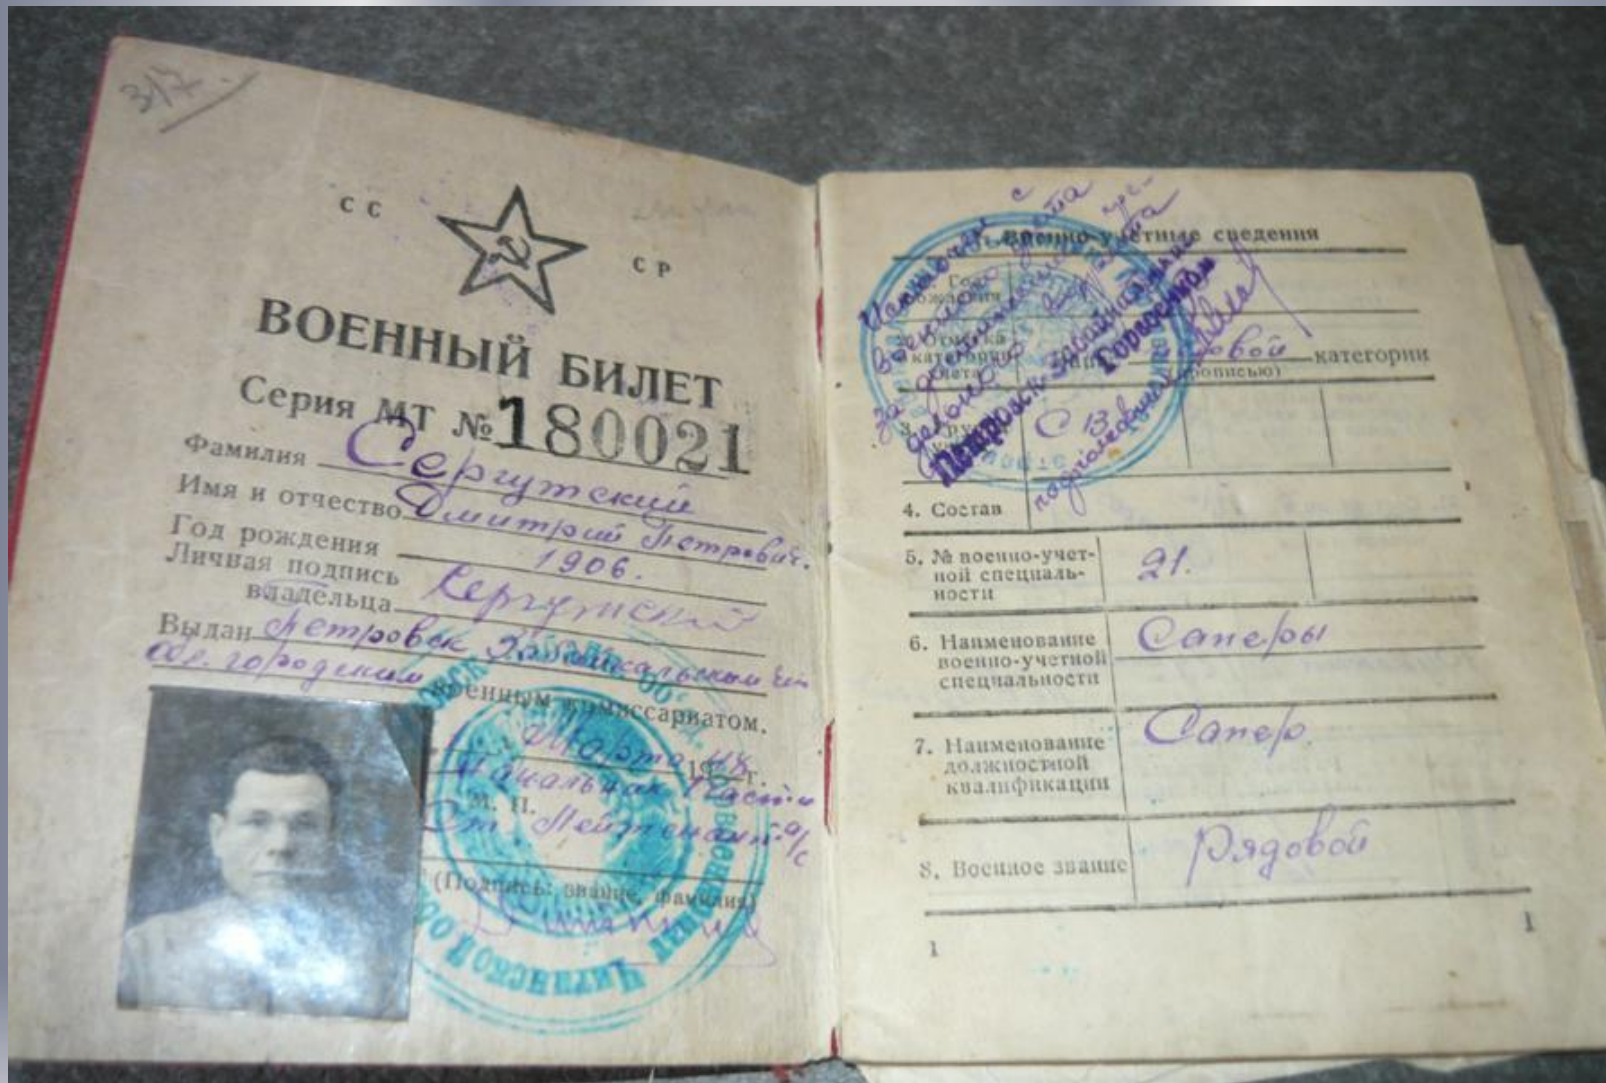 317.
СС
СР
ВОЕННЫЙ БИЛЕТ
Серия МТ № 180021
Фамилия Сергутский
Имя и отчество Дмитрий Петрович.
Год рождения 1906.
Личная подпись
владельца Сергутский
Выдан Петровск Забайкальским
городским военным комиссариатом.
Марта 48 г.
Начальник части
М. П.
Ст. Лейтенант а/с
(Подпись, звание, фамилия)
Военно-учетные сведения
Исключен с
военного учета
Петровск-Забайкальский
Горвоенком
подполковник
1. Год рождения
2. Отметка категории учета
категории
(прописью)
3.
4. Состав
5. № военно-учет-
ной специаль-
ности
21.
6. Наименование
военно-учетной
специальности
Саперы
7. Наименование
должностной
квалификации
Сапер
8. Военное звание Рядовой
1
1